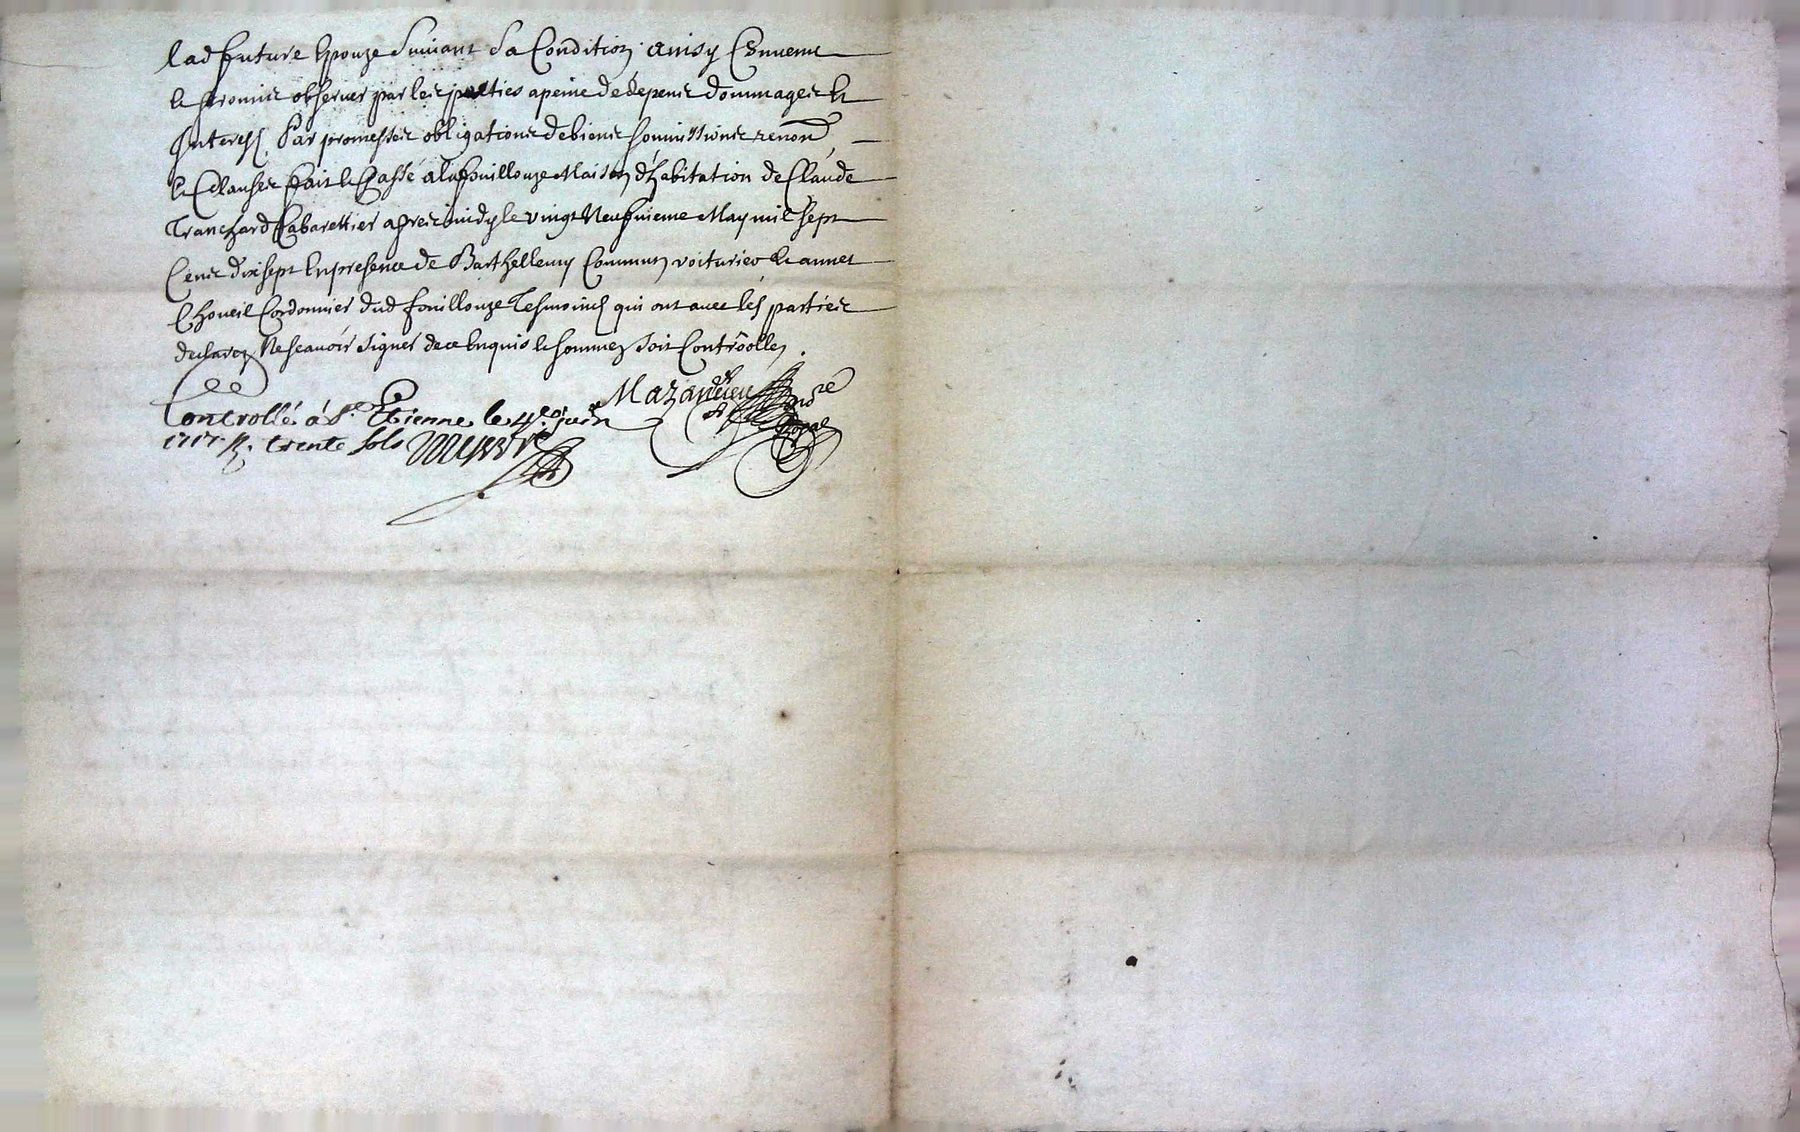 lad future Epouze Suiuant Sa Condition ainsy Conuenu
et promis obseruer par les parties a peine de depens dommages et
Interest Par promesses obligations de biens soumissions renond
et Clauses fait et Passé a la fouillouze Maison d'habitation de Claude
Tranchard Cabarettier apres midy le vingt Neufuieme May mil sept
Cens dix sept En presence de Barthellemy Commun voiturier et annet
Choueil Cordonnier dud fouillouze Tesmoins qui ont auec les parties
declarez Ne scauoir signer de ce Enquis et sommez soit Controollez
Mazandieu no.re Royal
Controllé à S.t Etienne le 4.e juin
1717. R. trente sols